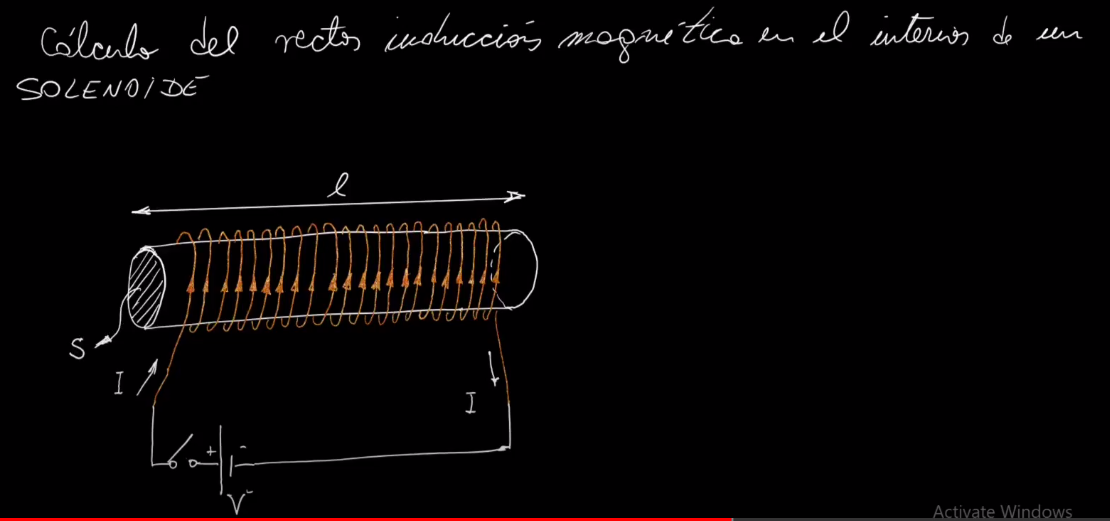 Cálculo del vector inducción magnética en el interior de un
SOLENOIDE
l
S
I
I
+ -
V
Activate Windows